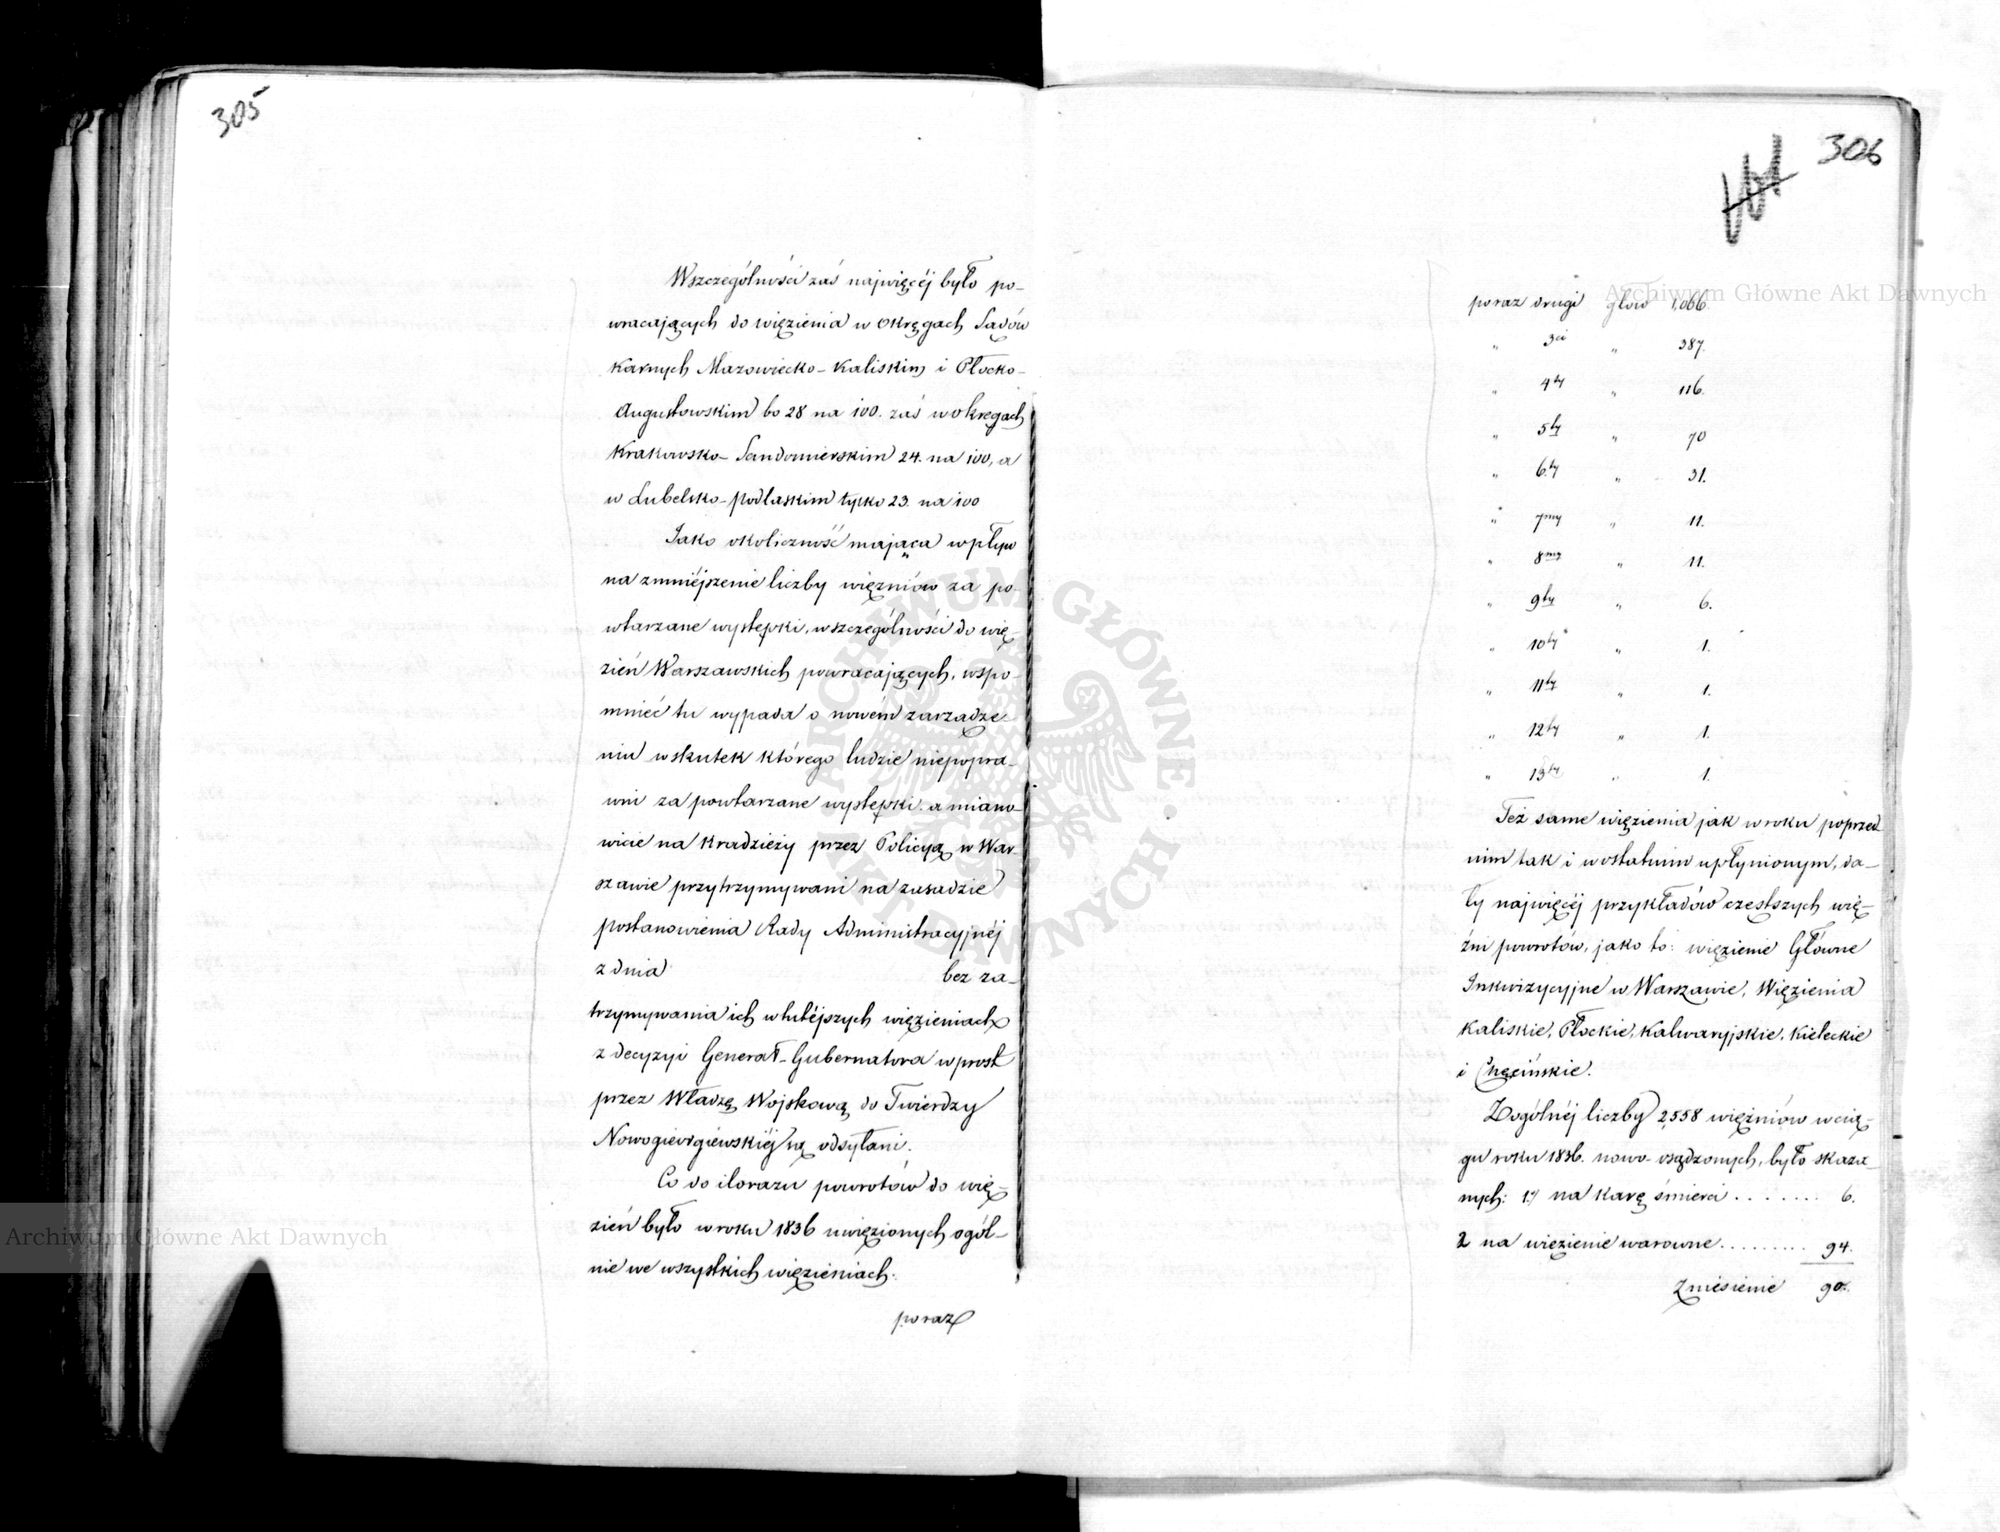 305
Wszczególności zaś najwięcéj było po-
wracających do więzienia w Okręgach Sądów
Karnych Mazowiecko-Kaliskim i Płocko-
Augustowskim bo 28 na 100. zaś w okręgach
Krakowsko-Sandomierskim 24. na 100, a
w Lubelsko-podlaskim tylko 23. na 100
Jako okoliczność mająca wpływ
na zmniéjszenie liczby więzniów za po-
wtarzane występki, wszczególności do wię-
zień Warszawskich powracających, wspo-
mnieć tu wypada o nowém zarządze-
niu wskutek którego ludzie niepopra-
wni za powtarzane występki a miano-
wicie na kradzieży przez Policyą w War-
szawie przytrzymywani na zasadzie
postanowienia Rady Administracyjnéj
z dnia bez za-
trzymywania ich w tutéjszych więzieniach
z decyzyi Generał-Gubernatora wprost
przez Władzę Wojskową do Twierdzy
Nowogieorgiewskiéj są odsyłani.
Co do ilorazu powrotów do wię-
zień było w roku 1836 uwięzionych ogól-
nie we wszystkich więzieniach:
poraz
306
poraz drugi głów 1,066.
" 3ci " 387.
" 4ty " 116.
" 5ty " 70
" 6ty " 31.
" 7my " 11.
" 8my " 11.
" 9ty " 6.
" 10ty " 1.
" 11ty " 1.
" 12ty " 1.
" 13ty " 1.
Też same więzienia jak w roku poprzed
nim tak i w ostatnim upłynionym, da-
ły najwięcéj przykładów częstszych wię-
źni powrotów, jako to: więzienie Główne
Inkwizycyjne w Warszawie, Więzienia
Kaliskie, Płockie, Kalwaryjskie, Kieleckie
i Chęcińskie.
Z ogólnéj liczby 2,558 więźniów w cią-
gu roku 1836. nowo-osądzonych, było skaza-
nych: 1) na karę śmierci . . . . . . . 6.
2 na więzienie warowne . . . . . . . . . 94.
Zniesienie
Archiwum Główne Akt Dawnych
Archiwum Główne Akt Dawnych
ARCHIWUM GŁÓWNE AKT DAWNYCH